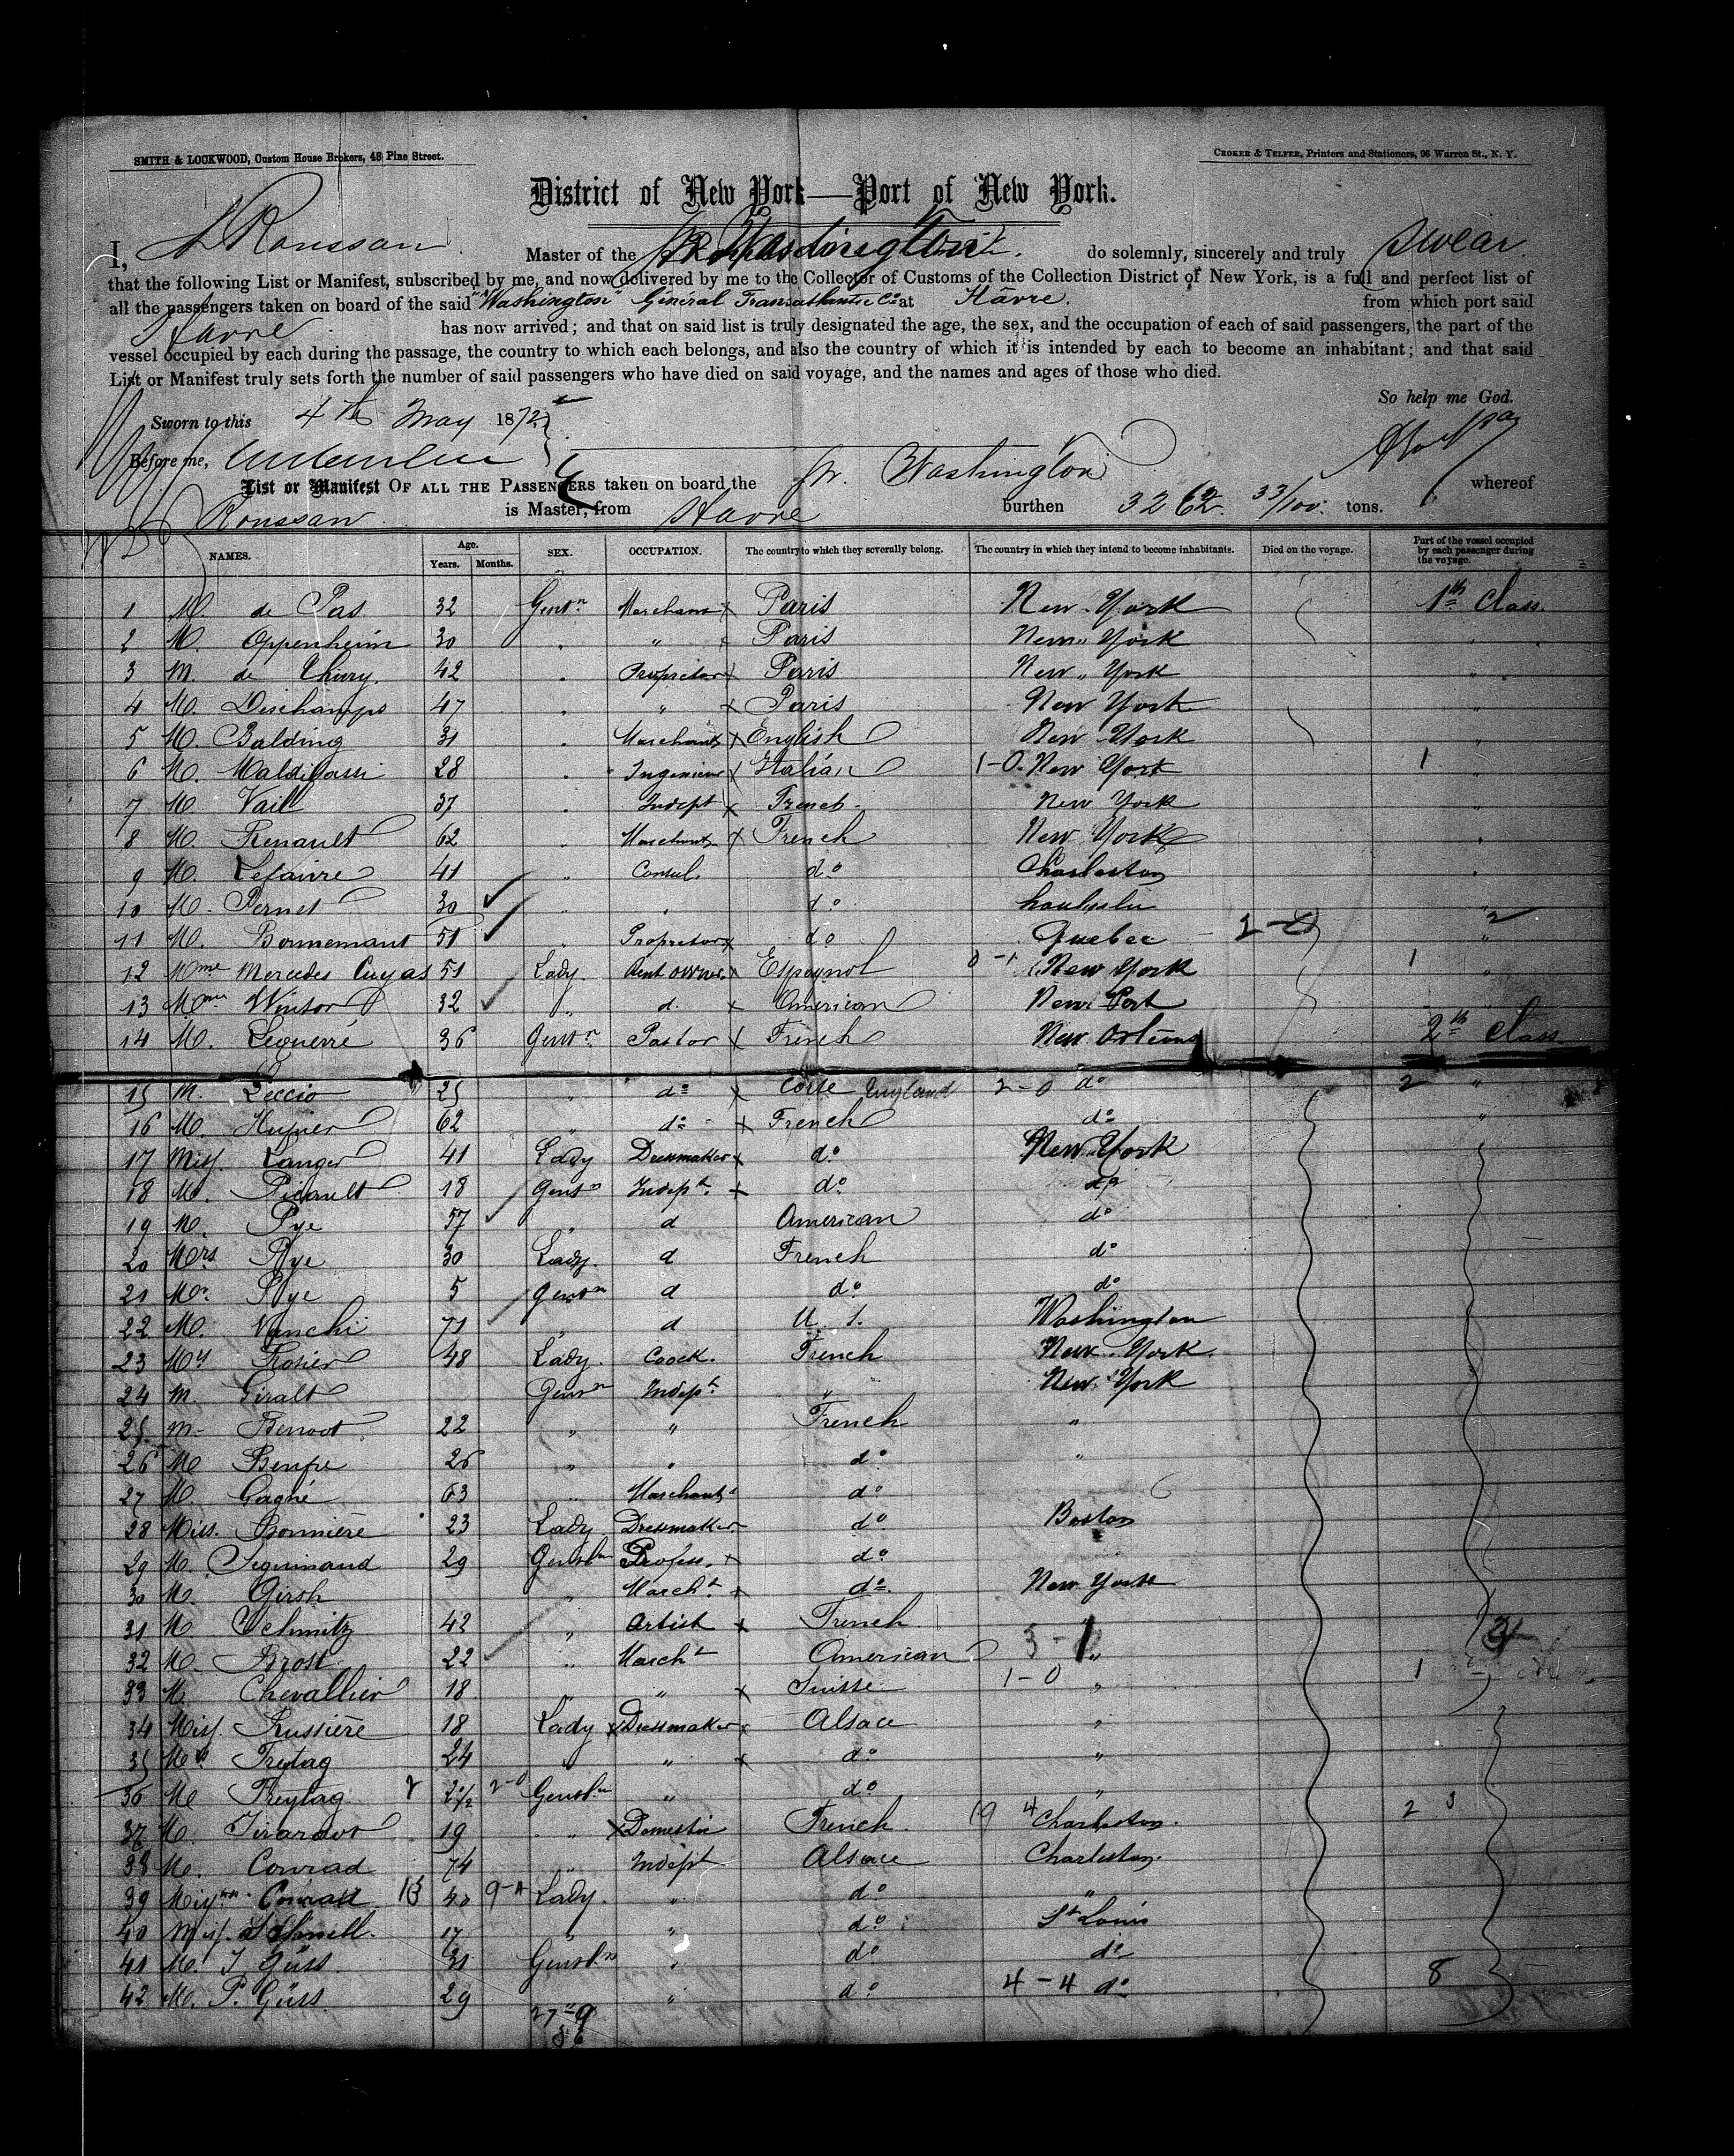 SMITH & LOCKWOOD, Custom House Brokers, 48 Pine Street.
CROKER & TELFER, Printers and Stationers, 96 Warren St., N. Y.
District of New York—Port of New York.
I, Roussan Master of the Washington do solemnly, sincerely and truly swear
that the following List or Manifest, subscribed by me, and now delivered by me to the Collector of Customs of the Collection District of New York, is a full and perfect list of
all the passengers taken on board of the said "Washington" Général Transatlantic Co at Hâvre. from which port said
Havre has now arrived; and that on said list is truly designated the age, the sex, and the occupation of each of said passengers, the part of the
vessel occupied by each during the passage, the country to which each belongs, and also the country of which it is intended by each to become an inhabitant; and that said
List or Manifest truly sets forth the number of said passengers who have died on said voyage, and the names and ages of those who died.
So help me God.
Sworn to this 4th May 1872
Before me,
List or Manifest OF ALL THE PASSENGERS taken on board the Washington whereof
Roussan is Master, from Havre burthen 3262 33/100 tons.
NAMES. Age. Years. Months. SEX. OCCUPATION. The country to which they severally belong. The country in which they intend to become inhabitants. Died on the voyage. Part of the vessel occupied by each passenger during the voyage.
1 M. de Pas 32 Gentn Marchant x Paris New York 1th Class.
2 M. Oppenheim 30 " Paris New York
3 M. de Thury. 42 Propritor Paris New York
4 M. Deschamps 47 " x Paris New York
5 M. Balding 31 Marchant x English New York
6 M. 28 Ingenieur Italian 1-0 New York 1
7 M. Vaill 37 Indept x French New York
8 M. Renault 62 Marchant x French New York
9 M. Lefaivre 41 Consul. do Charleston
10 M. Pernet 30 do
11 M. Bonnemant 51 Propretor x do Quebec 2-0 2
12 Mme Mercedes Cuyas 51 Lady Rent owner x Espagnol 0-1 New York 1
13 Mme Wintor 32 " d. x American New Port
14 M. Lequerré 36 Gentn Pastor x French New Orleans 2th Class
15 M. Leccio 25 " do x Corse England 2-0 do 2 "
16 M. Hufner 62 " do x French do "
17 Miss. Langer 41 Lady Dressmaker x do New York
18 M. Picault 18 Gentn Indept. x do do
19 M. Pye 57 " d American do
20 Mrs Pye 30 Lady. d French do
21 Mr. Pye 5 Gentn d do do
22 M. Vanchi 71 " d U. S. Washington
23 Ms Rosier 48 Lady. Coock. French New York.
24 M. Giralt Gentn Indept. " New York
25 M. Benoot 22 " " French "
26 M. 26 " " do "
27 M. Gagné 63 " Marchant do
28 Miss. Bonnière 23 Lady Dressmaker do Boston
29 M. Seguinaud 29 Gentn Profess. x do
30 M. Girsh " Marcht x do New York
31 M Schmitz 42 " Artist x French "
32 M. Brost 22 " Marcht American 3-1 "
33 M. Chevallier 18 " " x Suisse 1-0 " 1
34 Miss. Russière 18 Lady x Dressmaker x Alsace "
35 Ms Freytag 24 " " x do "
36 M. Freytag 2 2 1/2 2-0 Gentn " do "
37 M. Girardot 19 " x Domestic French 4 Charleston. 2 3
38 M. Conrad 74 " Indept Alsace Charleston.
39 Conrad 13 40 9-4 Lady. " do "
40 Miss. Schnell. 17 " " do St Louis
41 M. J Güss. 31 Gentn " do do
42 M. P. Güss. 29 " do 4-4 do 8
27 9
36